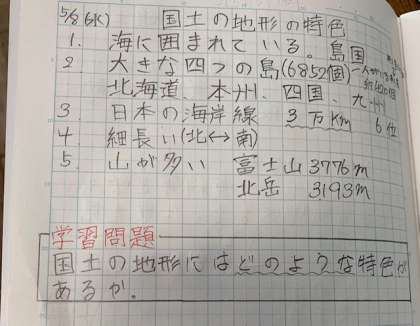 5/8 (水) 国土の地形の特色
1. 海に囲まれている。島国
2 大きな四つの島(6852個)
北海道、本州、四国、九州
3. 日本の海岸線 3万km 6位
4 細長い(北↔南)
5. 山が多い 富士山 3776m
北岳 3193m
学習問題
国土の地形にはどのような特色が
あるか。